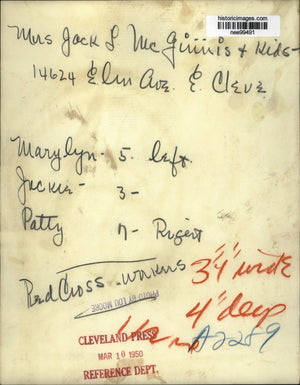 historicimages.com
nee99491
Mrs Jack L McGinnis + Kids-
14624 Elm Ave. E. Cleve
Marylyn- 5. left.
Jackie- 3-
Patty 7- Right
Red Cross workers
3¼" wide
PHOTO BY LOU MOORE
4" deep
CLEVELAND PRESS
A2259
MAR 10 1950
REFERENCE DEPT.